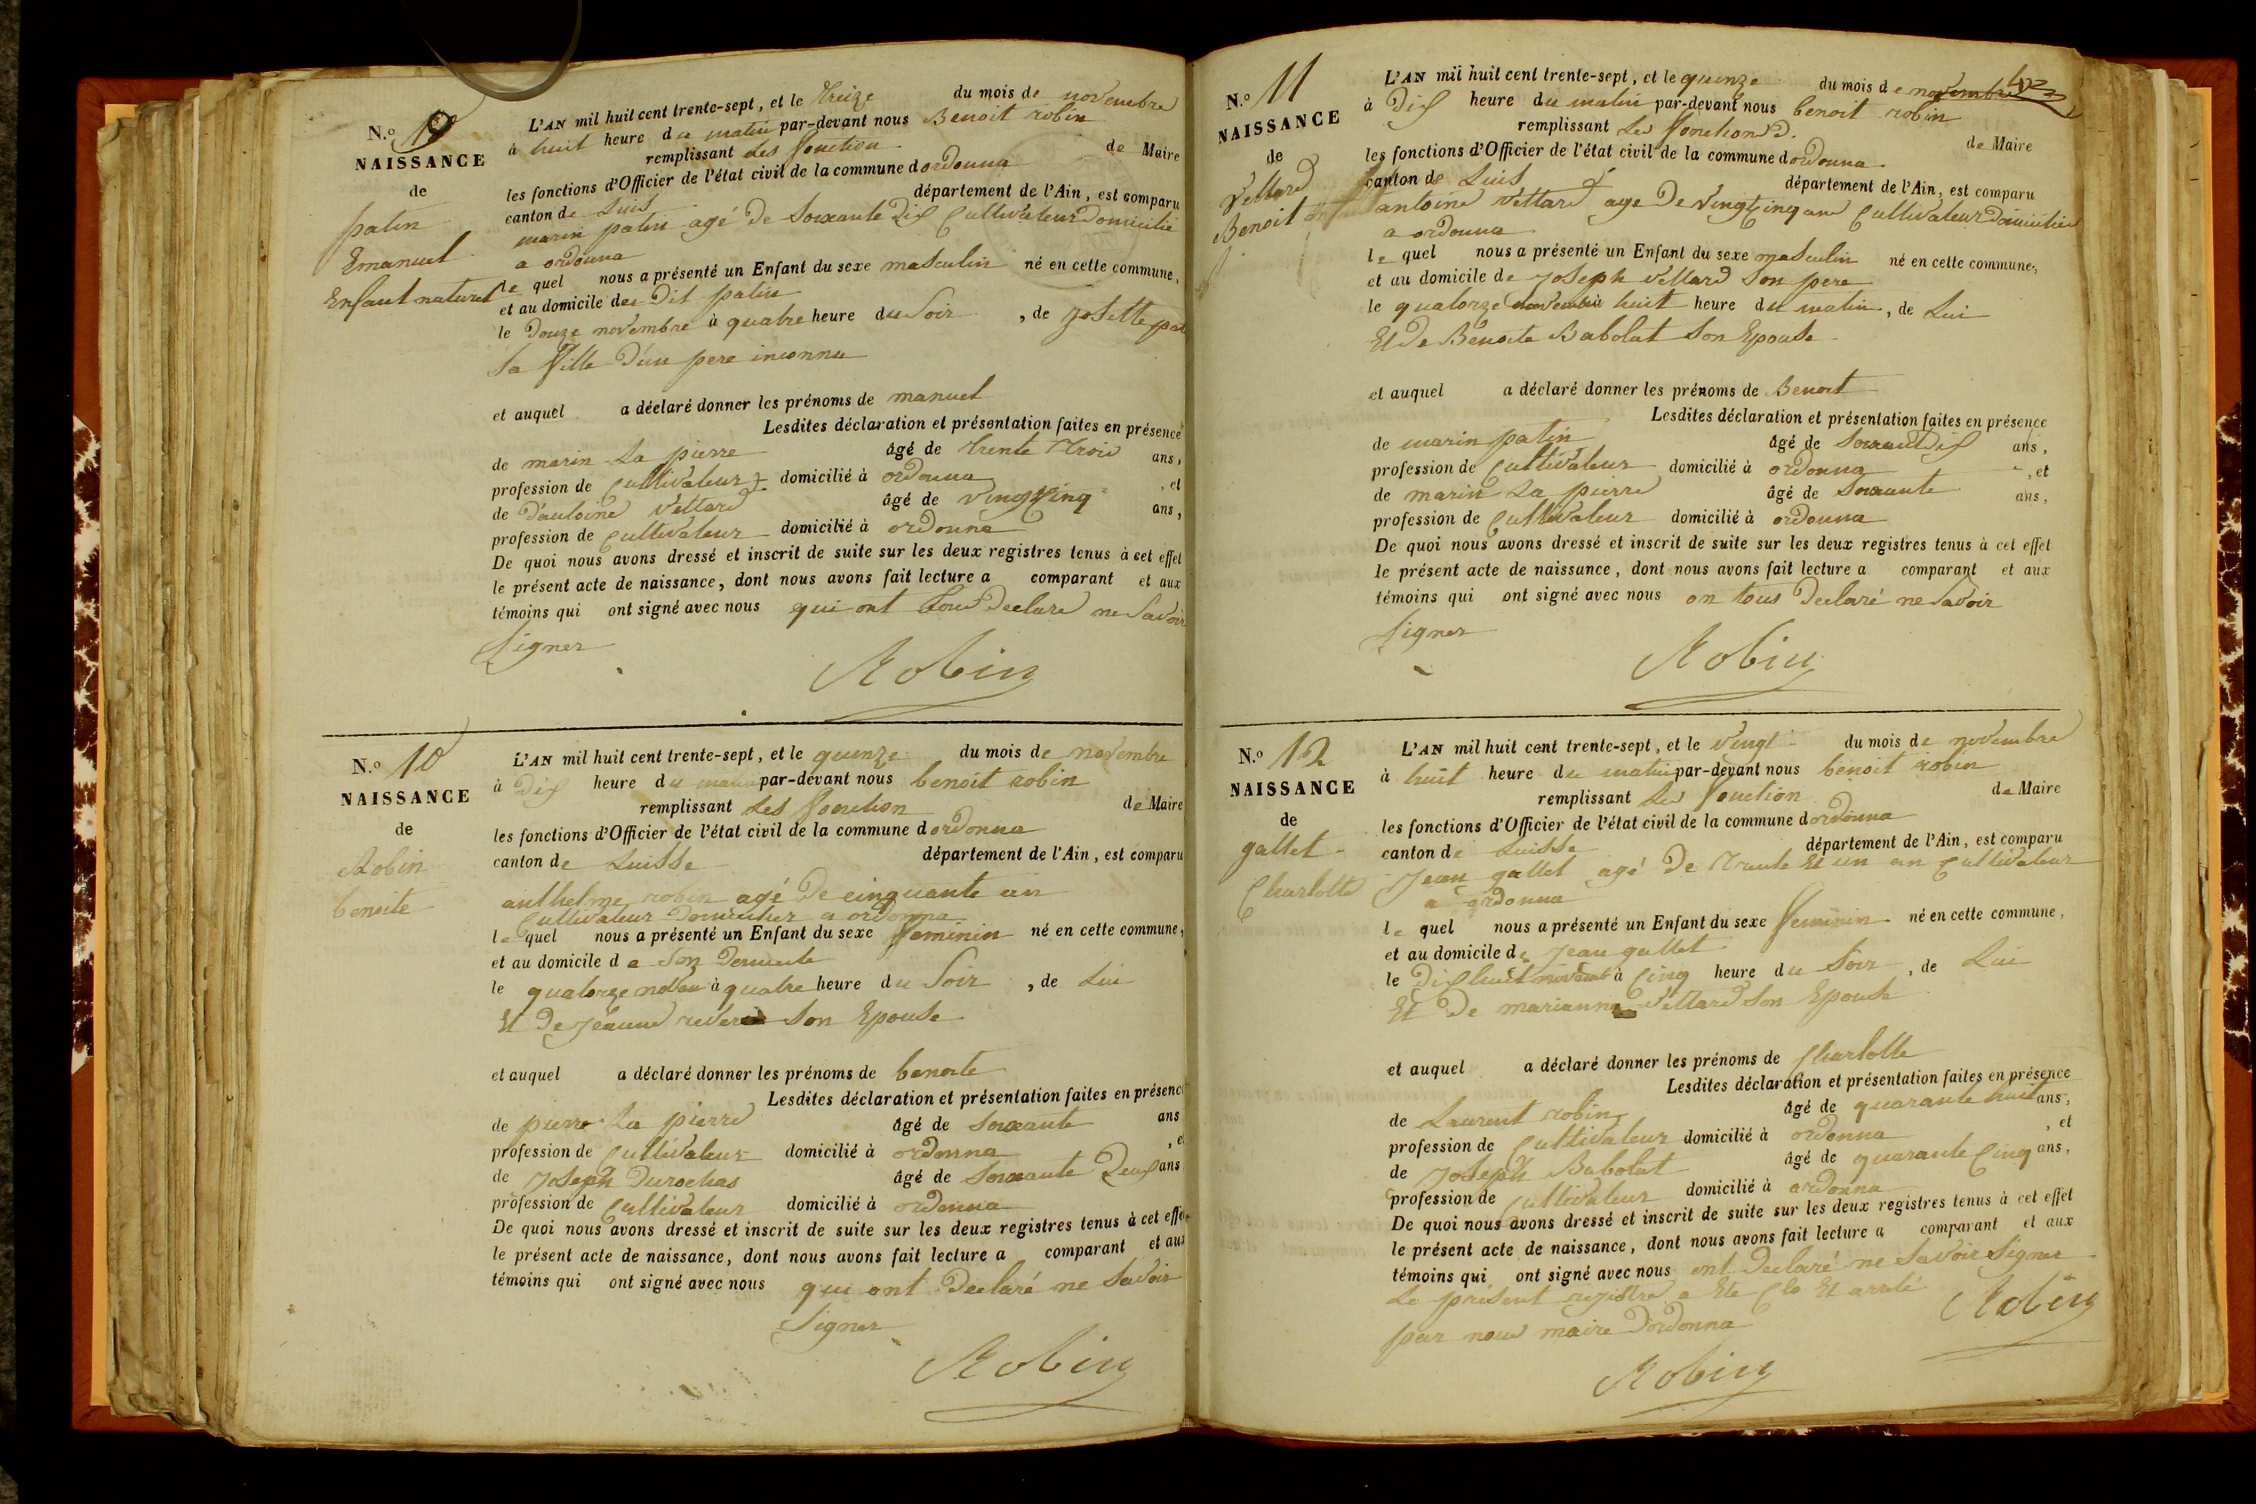 N.o 9
NAISSANCE
de
patin
Emanuel
Enfant naturel
L'AN mil huit cent trente-sept, et le treize du mois de novembre
à huit heure du matin par-devant nous Benoit robin
remplissant les fonction de Maire
les fonctions d'Officier de l'état civil de la commune dordonna
canton de Luis département de l'Ain, est comparu
marin patin agé de Soixante Dix Cultivateur Domicilié
a ordonna
le quel nous a présenté un Enfant du sexe masculin né en cette commune,
et au domicile de Dit patin
le Douze novembre à quatre heure du Soir, de Josette
Sa fille D'un pere inconnu
et auquel a déclaré donner les prénoms de manuel
Lesdites déclaration et présentation faites en présence
de marin La pierre âgé de trente Trois ans,
profession de Cultivateur domicilié à ordonna, et
de D'antoine Vettard âgé de Vingt Cinq ans,
profession de Cultivateur domicilié à ordonna
De quoi nous avons dressé et inscrit de suite sur les deux registres tenus à cet effet
le présent acte de naissance, dont nous avons fait lecture a comparant et aux
témoins qui ont signé avec nous qui ont tous Declaré ne Savoir
Signer
Robin
N.o 10
NAISSANCE
de
Robin
benoite
L'AN mil huit cent trente-sept, et le quinze du mois de novembre
à Dix heure du par-devant nous benoit robin
remplissant Les fonction de Maire
les fonctions d'Officier de l'état civil de la commune dordonna
canton de Luisse département de l'Ain, est comparu
anthelme robin agé De cinquante un
Cultivateur Domicilier a ordonna
le quel nous a présenté un Enfant du sexe feminin né en cette commune,
et au domicile de Son
le quatorze à quatre heure du Soir, de Lui
Et De Jeanne Son Epouse
et auquel a déclaré donner les prénoms de benoite
Lesdites déclaration et présentation faites en présence
de pierre La pierre âgé de Soixante ans
profession de Cultivateur domicilié à ordonna, et
de Joseph Durochas âgé de Soixante Deux ans
profession de Cultivateur domicilié à ordonna
De quoi nous avons dressé et inscrit de suite sur les deux registres tenus à cet effet
le présent acte de naissance, dont nous avons fait lecture a comparant et aux
témoins qui ont signé avec nous qui ont Declaré ne Savoir
Signer
Robin
N.o 11
NAISSANCE
de
Vettard
Benoit
L'AN mil huit cent trente-sept, et le quinze du mois de novembre
à Dix heure du matin par-devant nous benoit robin
remplissant Les fonction de Maire
les fonctions d'Officier de l'état civil de la commune dordonna
canton de Luis département de l'Ain, est comparu
antoine Vettard age De Vingt Cinq ans Cultivateur Domicilier
a ordonna
le quel nous a présenté un Enfant du sexe masculin né en cette commune,
et au domicile de Joseph Vettard Son pere
le quatorze novembre à huit heure du matin, de Lui
Et De Benoite Babolat Son Epouse
et auquel a déclaré donner les prénoms de Benoit
Lesdites déclaration et présentation faites en présence
de marin patin âgé de Soixante Dix ans,
profession de Cultivateur domicilié à ordonna, et
de marin La pierre âgé de Soixante ans,
profession de Cultivateur domicilié à ordonna
De quoi nous avons dressé et inscrit de suite sur les deux registres tenus à cet effet
le présent acte de naissance, dont nous avons fait lecture a comparant et aux
témoins qui ont signé avec nous on tous Declaré ne Savoir
Signer
Robin
N.o 12
NAISSANCE
de
gallet
Charlotte
L'AN mil huit cent trente-sept, et le Vingt du mois de novembre
à huit heure du matin par-devant nous benoit robin
remplissant Les fonction de Maire
les fonctions d'Officier de l'état civil de la commune dordonna
canton de Luisse département de l'Ain, est comparu
Jean gallet agé De Trente Et un an Cultivateur
a ordonna
le quel nous a présenté un Enfant du sexe feminin né en cette commune,
et au domicile de Jean gallet
le Dix huit novembre à Cinq heure du Soir, de Lui
Et De marianne Vettard Son Epouse
et auquel a déclaré donner les prénoms de Charlotte
Lesdites déclaration et présentation faites en présence
de Laurent robin âgé de quarante huit ans,
profession de Cultivateur domicilié à ordonna, et
de Joseph Babolat âgé de quarante Cinq ans,
profession de Cultivateur domicilié à ordonna
De quoi nous avons dressé et inscrit de suite sur les deux registres tenus à cet effet
le présent acte de naissance, dont nous avons fait lecture a comparant et aux
témoins qui ont signé avec nous ont Declaré ne Savoir Signer
Le present registre a Ete Clo Et arrêté Robin
par nous maire Dordonna
Robin